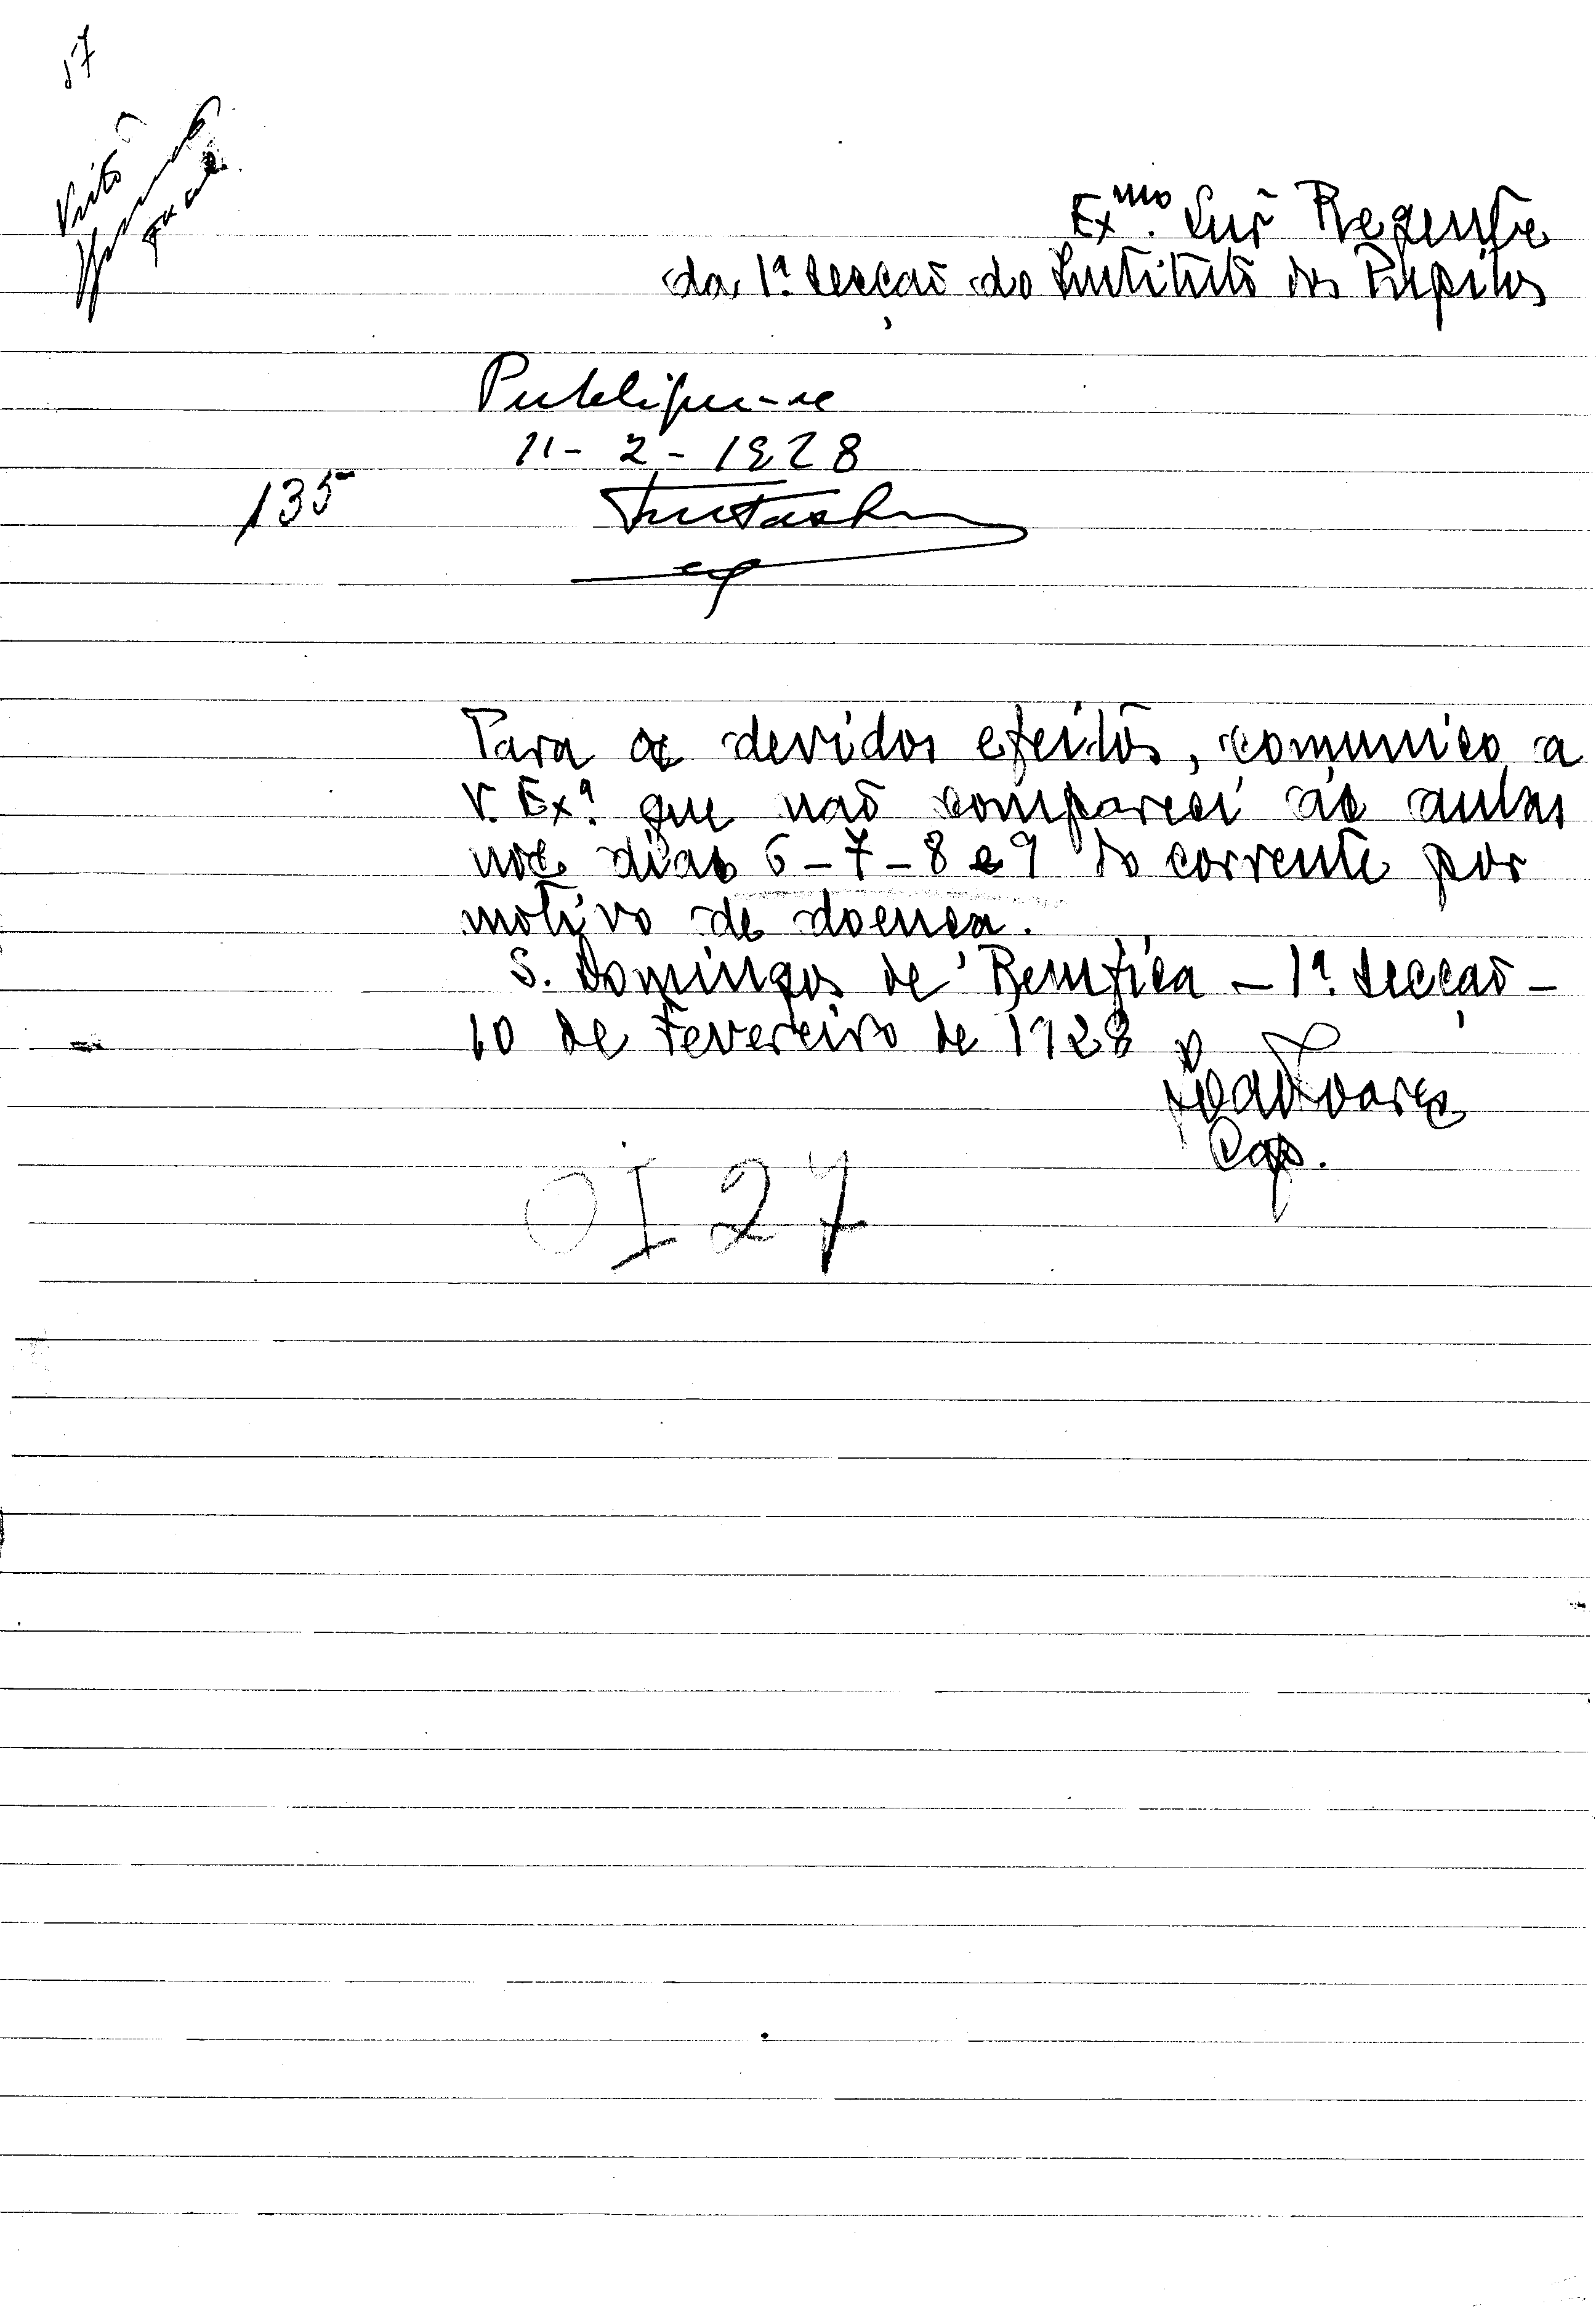 17
Visto
Ex.mo Snr Regente
da 1ª Secção do Instituto dos Pupilos
Publique-se
11-2-1928
135
Para os devidos efeitos, comunico a
V. Ex.ª que não compareci ás aulas
nos dias 6-7-8 e 9 do corrente por
motivo de doença.
S. Domingos de Bemfica - 1ª Secção -
10 de Fevereiro de 1928
João Soares
Cap.
OI 27